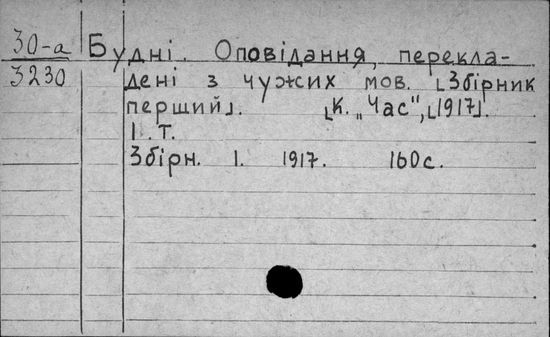 30-а
3230
Будні. Оповідання, перекла-
дені з чужих мов. [Збірник
перший]. [К. „Час", [1917].
1. т.
Збірн. 1. 1917. 160с.